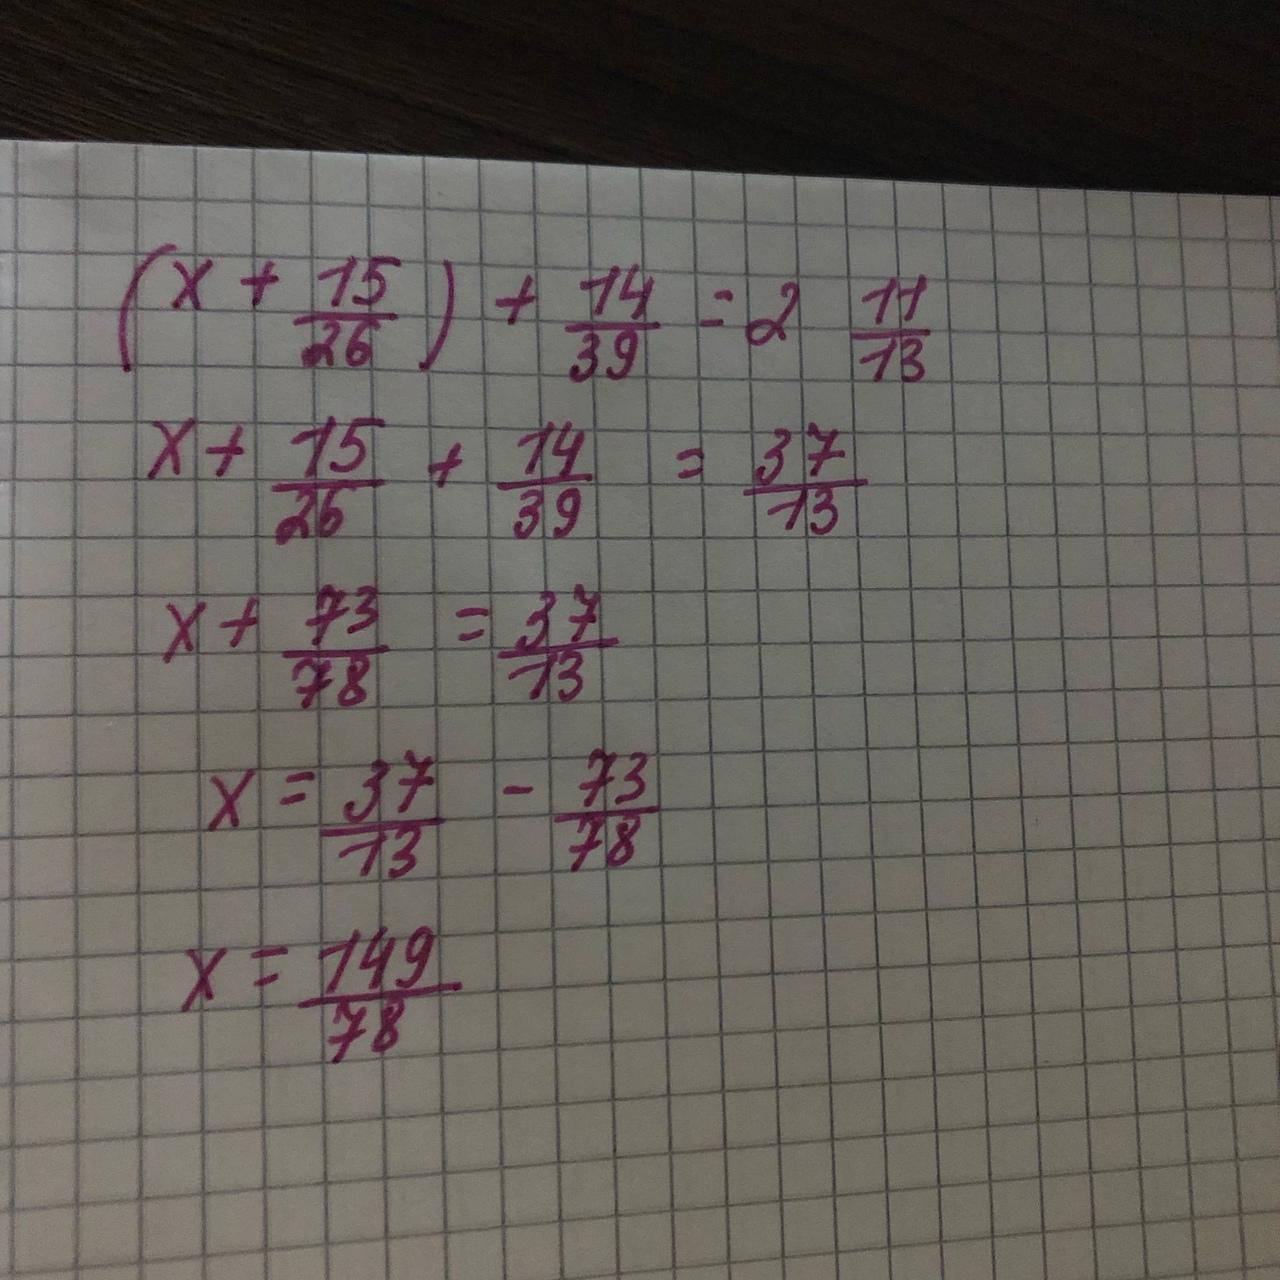 (x + 15/26) + 14/39 = 2 11/13
x + 15/26 + 14/39 = 37/13
x + 73/78 = 37/13
x = 37/13 - 73/78
x = 149/78